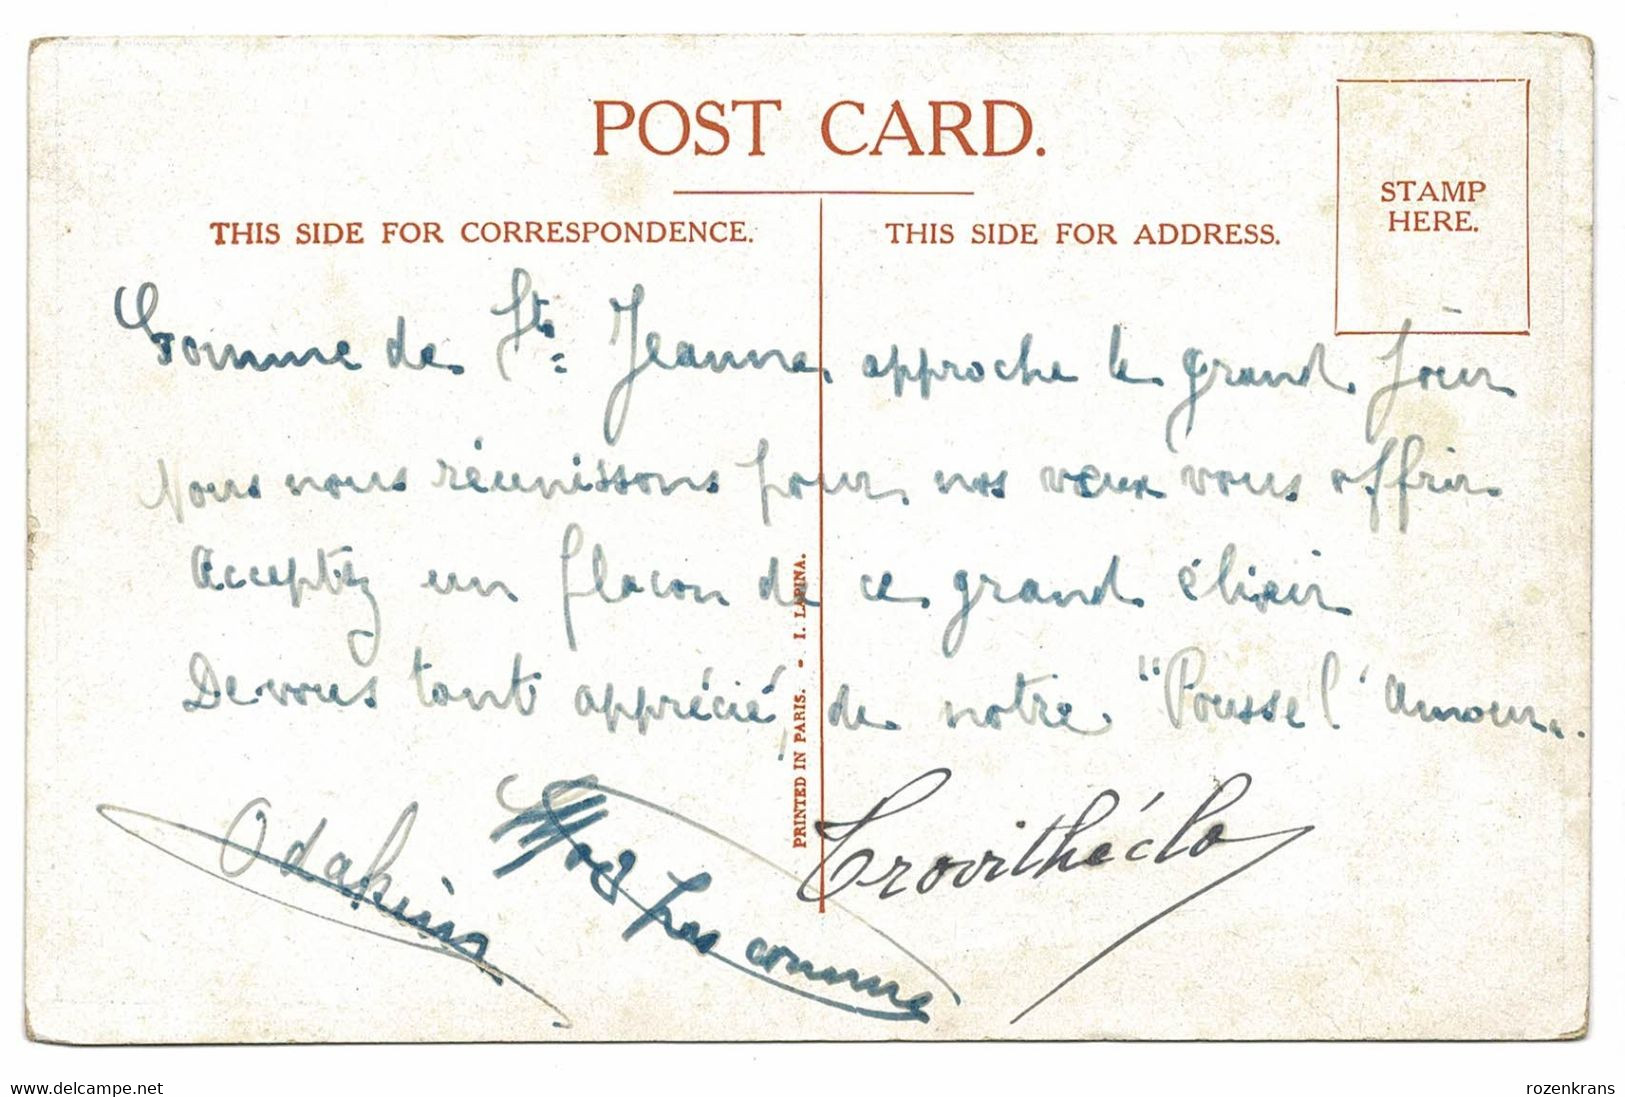 POST CARD.
STAMP
HERE.
THIS SIDE FOR CORRESPONDENCE.
THIS SIDE FOR ADDRESS.
Comme de Ste Jeanne, approche le grand jour
Nous nous réunissons pour nos vœux vous offrir
Acceptez un flacon de ce grand élixir
De vous tant apprécié, de notre "Pousse l'Amour.
PRINTED IN PARIS. - I. LAPINA.
pas comme
www.delcampe.net
rozenkrans